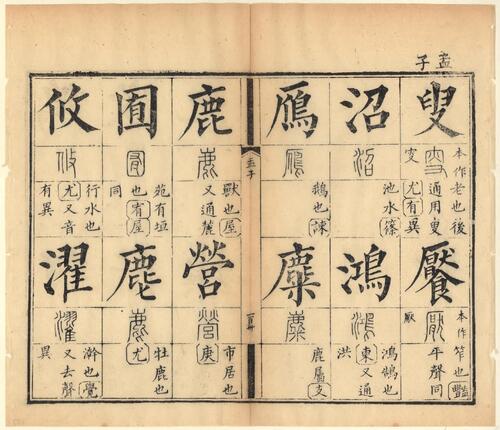 孟子
叟
本作老也後
通用叟
叜尤有異
沼
沼
池水篠
鴈
鴈
鵝也諫
孟子
鹿
鹿
獸也屋
又通麓
囿
囿
苑有垣
也宥屋
同
攸
攸
行水也
尤又音
有異
饜
本作笮也豔
平聲同
厭
鴻
鴻
鴻鵠也
東又通
洪
麋
麋
鹿屬支
營
營
市居也
庚
麀
麀
牡鹿也
尤
濯
濯
澣也覺
又去聲
異